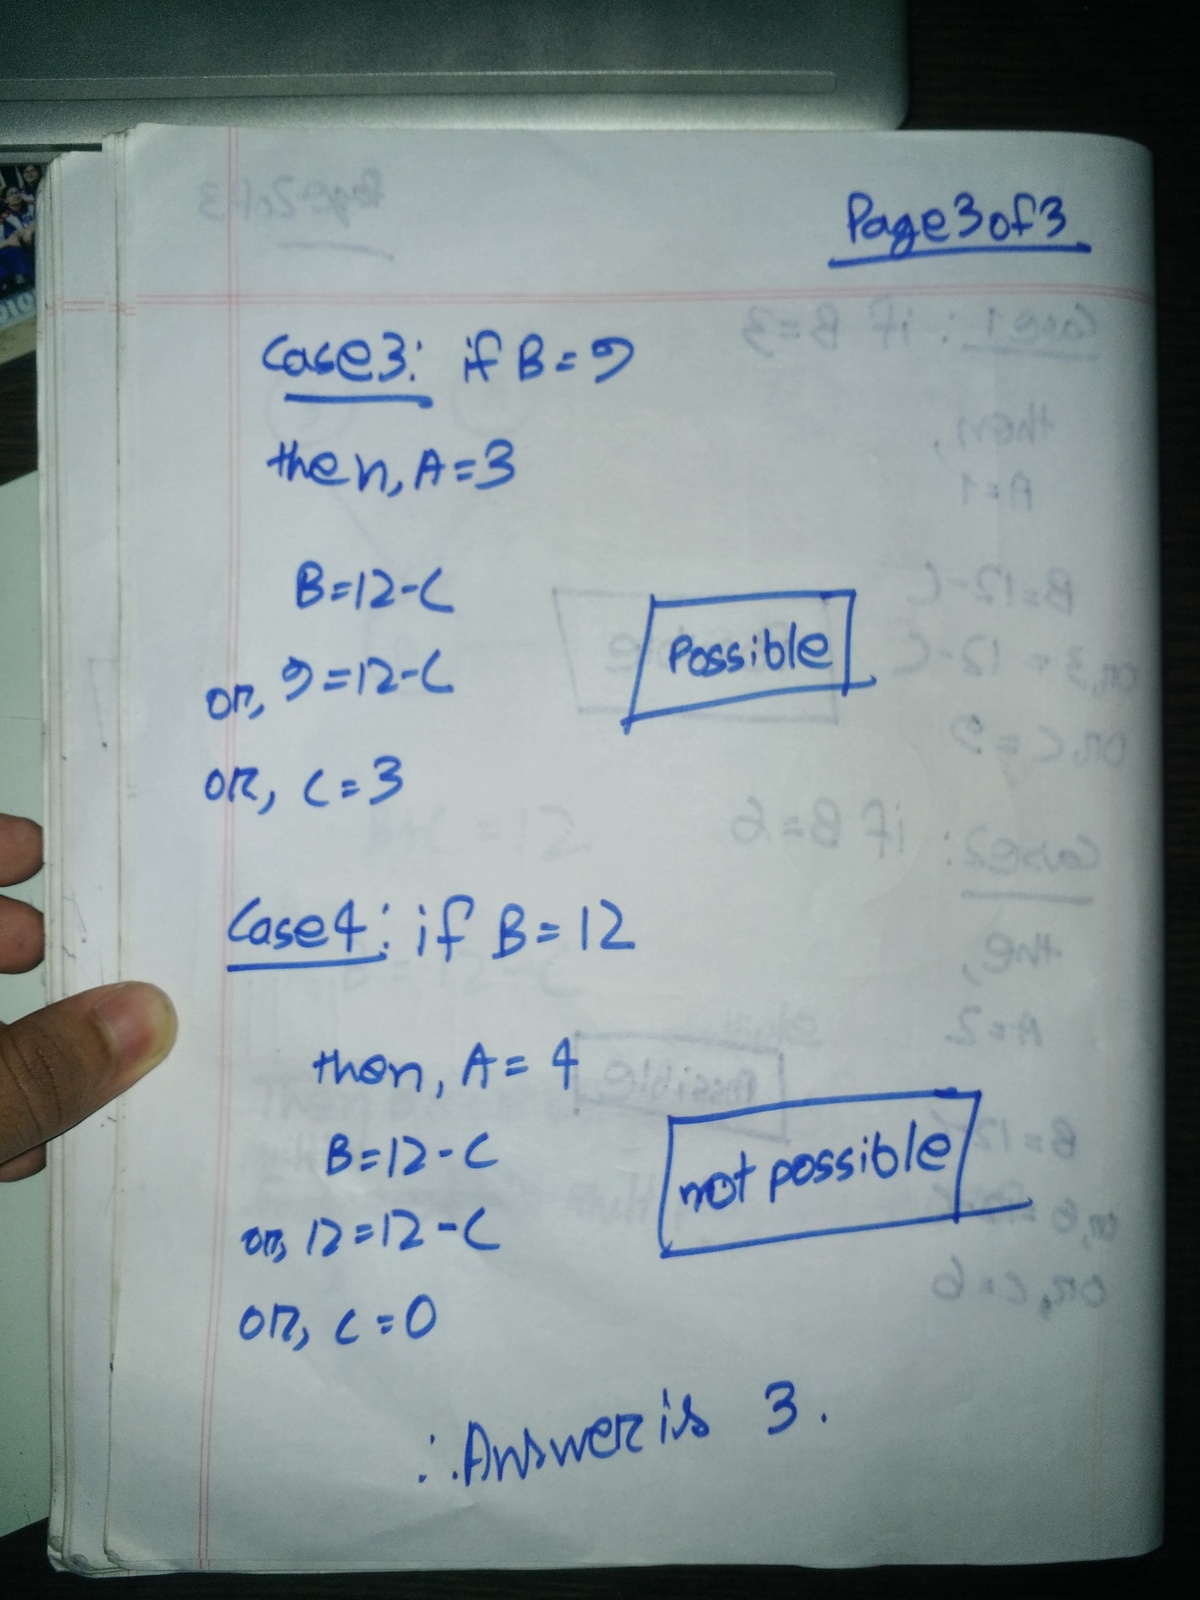 Page 3 of 3
Case 3: if B = 9
then, A = 3
B = 12 - C
or, 9 = 12 - C
or, C = 3
Possible
Case 4: if B = 12
then, A = 4
B = 12 - C
or, 12 = 12 - C
or, C = 0
not possible
∴ Answer is 3.